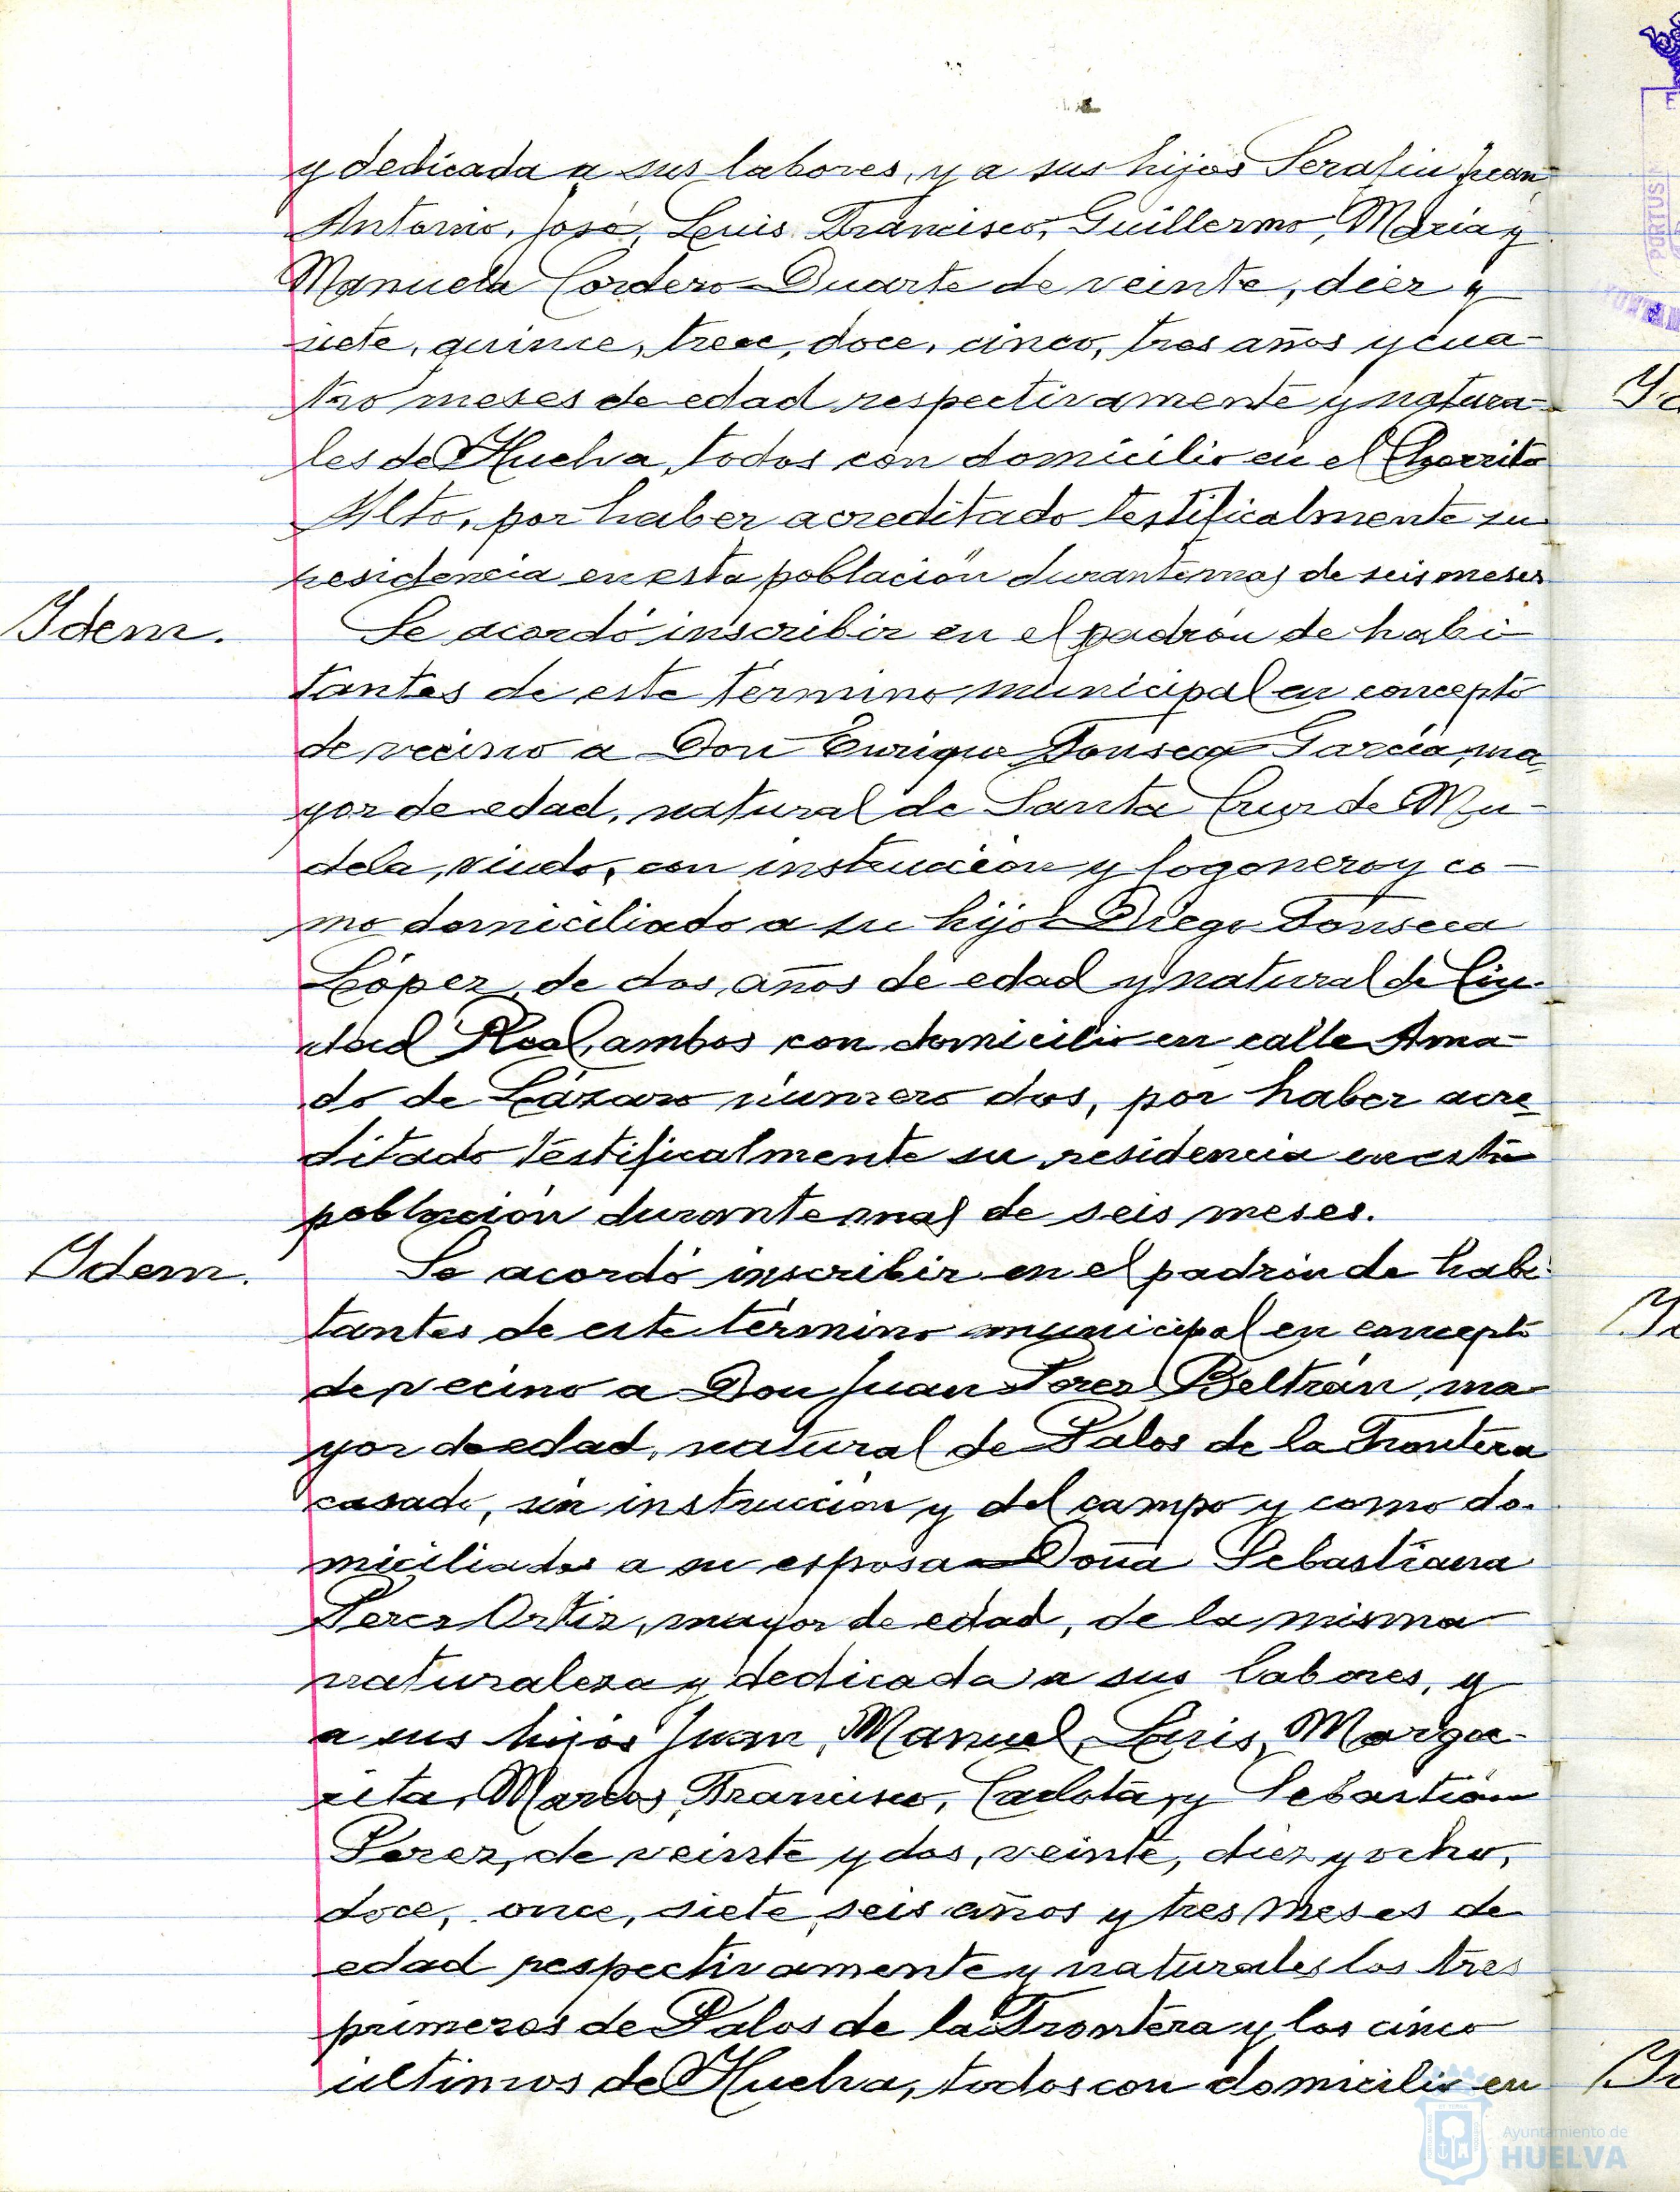 y dedicada a sus labores, y a sus hijos Serafin Juan
Antonio, José, Luis Francisco, Guillermo, Maria y
Manuela Cordero Duarte de veinte, diez y
siete, quince, trece, doce, cinco, tres años y cua-
tro meses de edad respectivamente y natura-
les de Huelva, todos con domicilio en el Chorrito
Alto, por haber acreditado testificalmente su
residencia en esta población durante mas de seis meses
Idem.
Se acordó inscribir en el padrón de habi-
tantes de este término municipal en concepto
de vecino a Don Enrique Fonseca García, ma-
yor de edad, natural de Santa Cruz de Mu-
dela, viudo, con instrucción y fogonero y co-
mo domiciliado a su hijo Diego Fonseca
López, de dos años de edad y natural de Ciu-
dad Real, ambos con domicilio en calle Ama-
do de Lázaro número dos, por haber acre-
ditado testificalmente su residencia en esta
población durante mas de seis meses.
Idem.
Se acordó inscribir en el padrón de habi-
tantes de este término municipal en concepto
de vecino a Don Juan Perez Beltrán, ma-
yor de edad, natural de Palos de la Frontera
casado, sin instrucción y del campo y como do-
miciliados a su esposa Doña Sebastiana
Perez Ortiz, mayor de edad, de la misma
naturaleza y dedicada a sus labores, y
a sus hijos Juan, Manuel, Luis, Marga-
rita, Marcos, Francisco, Carlota, y Sebastián
Perez, de veinte y dos, veinte, diez y ocho,
doce, once, siete, seis años y tres meses de
edad respectivamente y naturales los tres
primeros de Palos de la Frontera y los cinco
ultimos de Huelva, todos con domicilio en
PORTUS M
Ayuntamiento de
HUELVA